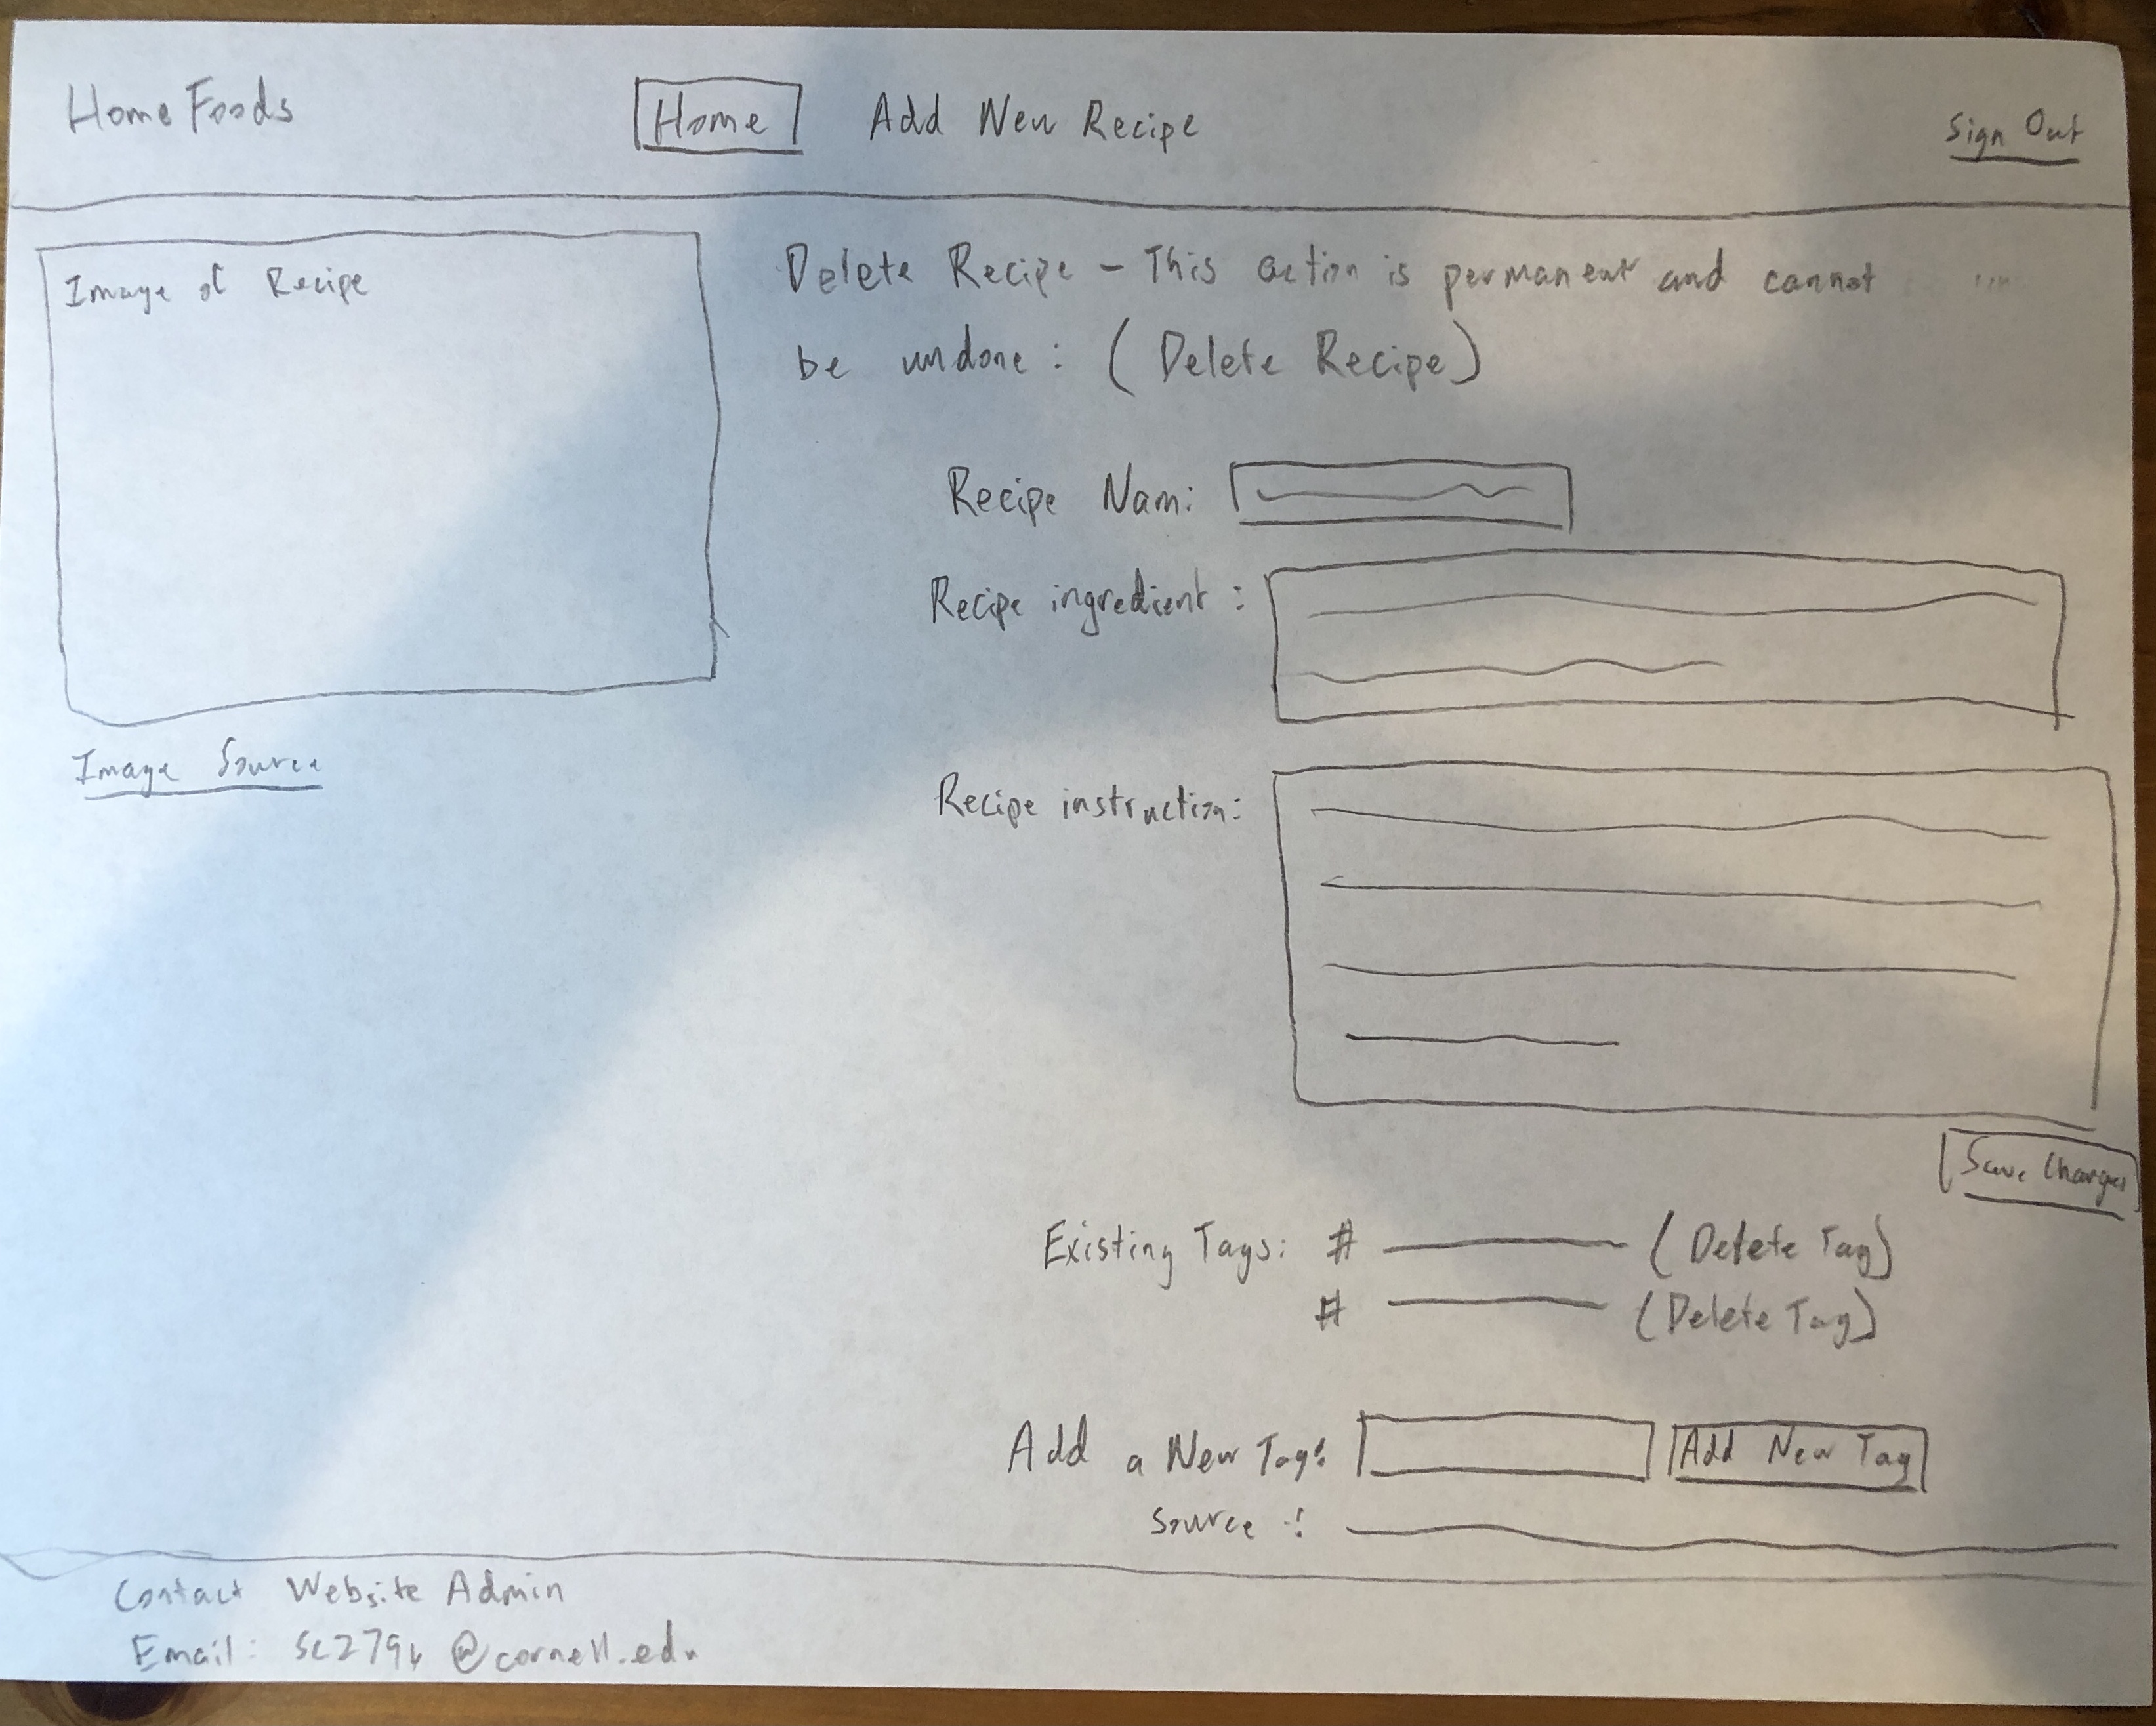 Home Foods
Home
Add New Recipe
Sign Out
Image of Recipe
Image Source
Delete Recipe - This action is permanent and cannot
be undone: (Delete Recipe)
Recipe Nam:
Recipe ingredient:
Recipe instruction:
Save Changes
Existing Tags: # (Delete Tag)
# (Delete Tag)
Add a New Tag: Add New Tag
Source:
Contact Website Admin
Email: @cornell.edu